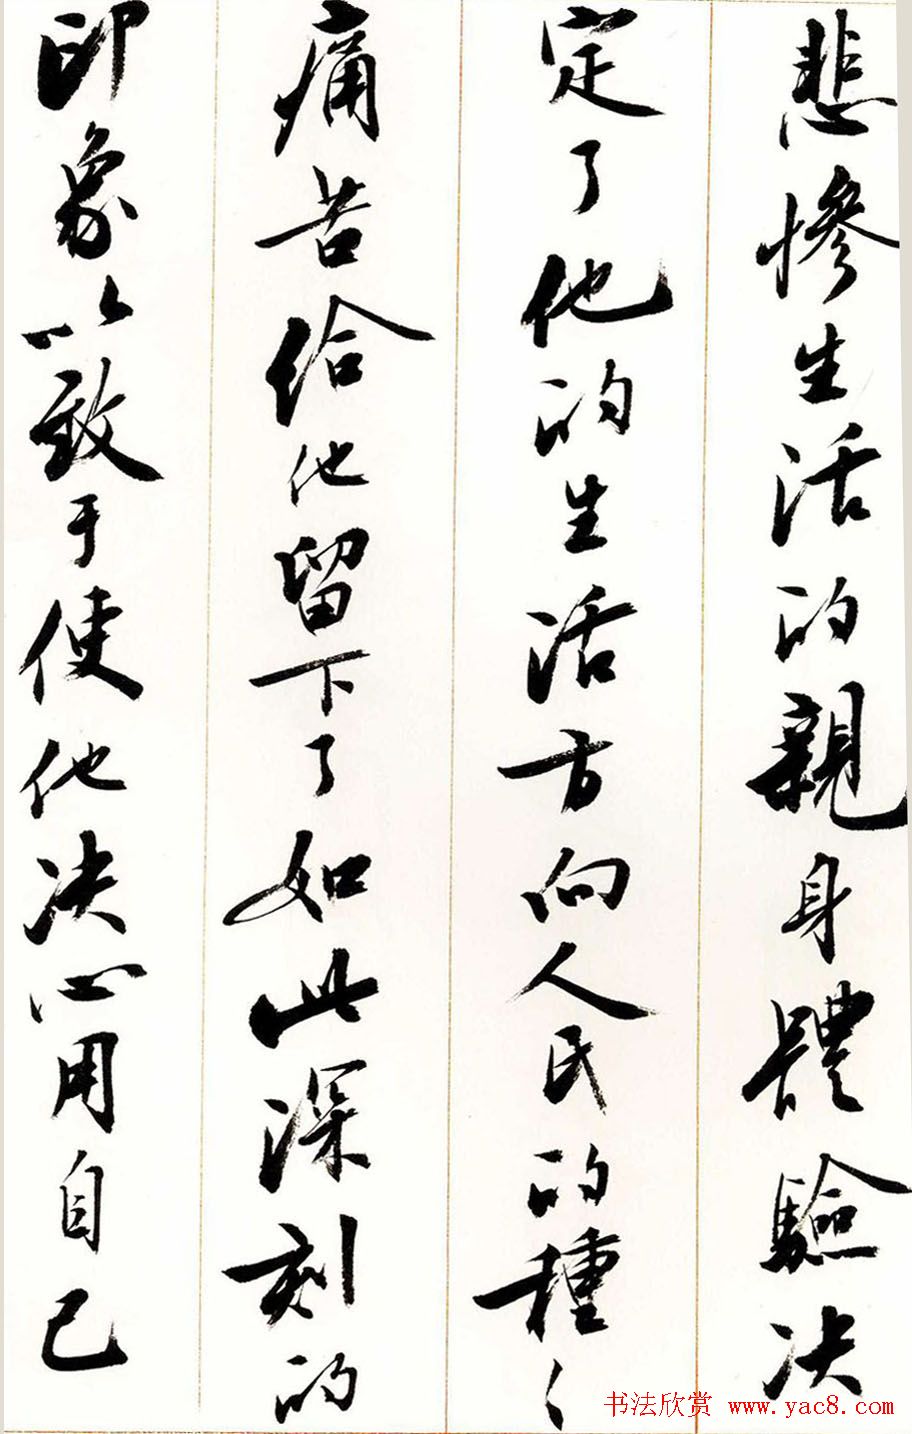 悲慘生活的親身體驗决
定了他的生活方向人民的種々
痛苦給他留下了如此深刻的
印象以致于使他决心用自己
书法欣赏 www.yac8.com